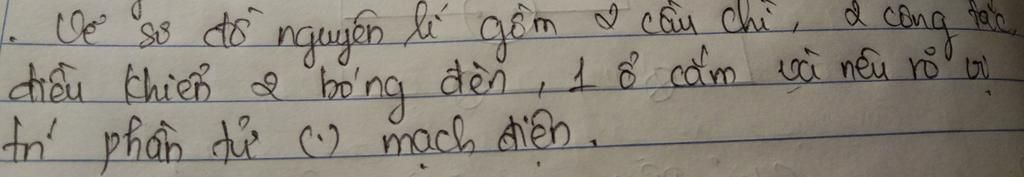 . Vẽ sơ đồ nguyên lí gồm 2 cầu chì, 2 công tắc
điều khiển 2 bóng đèn, 1 ổ cắm và nêu rõ vị
trí phần tử (.) mạch điện.